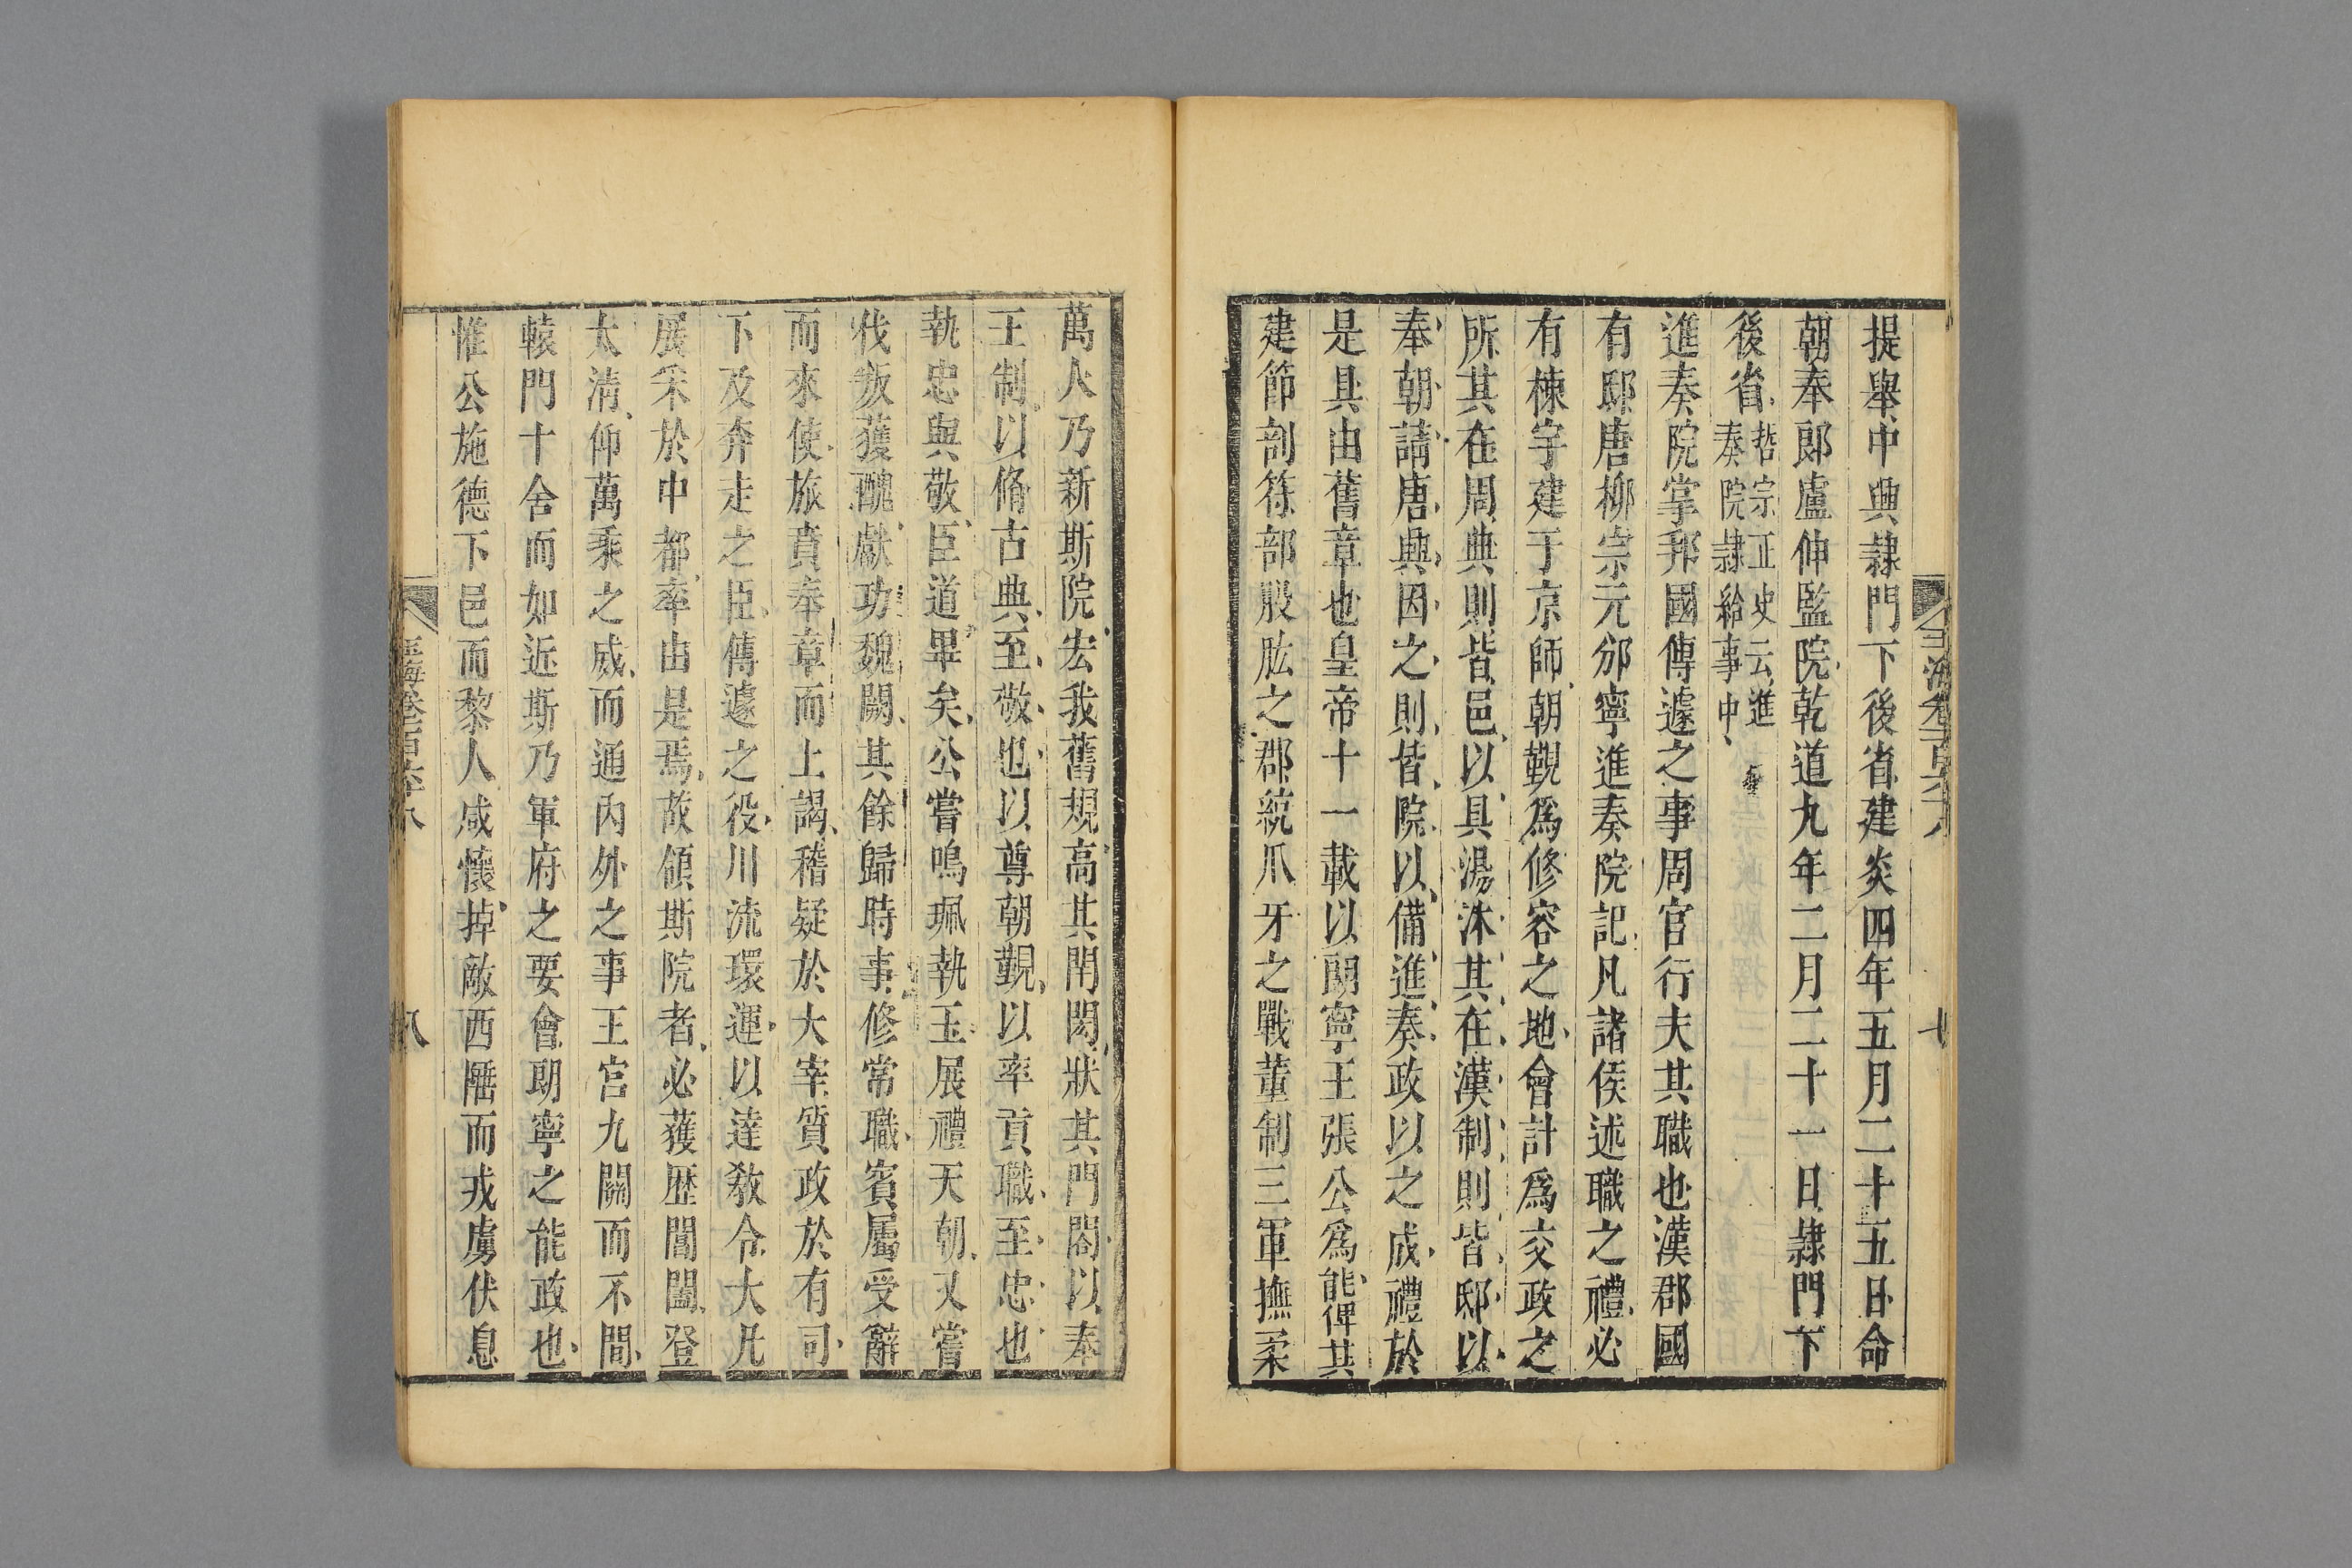 提舉中興隸門下後省建炎四年五月二十五日命
朝奉郎盧伸監院乾道九年二月二十一日隸門下
後省哲宗正史云進奏院隸給事中
進奏院掌邦國傳遽之事周官行夫其職也漢郡國
有邸唐柳宗元邠寧進奏院記凡諸侯述職之禮必
有棟宇建于京師朝覲爲修容之地會計爲交政之
所其在周典則皆邑以具湯沐其在漢制則皆邸以
奉朝請唐興因之則皆院以備進奏政以之成禮於
是具由舊章也皇帝十一載以朗寧王張公爲能俾其
建節剖符部股肱之郡統爪牙之戰董制三軍撫柔
萬人乃新斯院宏我舊規高其閈閎狀其門閤以奉
王制以脩古典至敬也以尊朝覲以率貢職至忠也
執忠與敬臣道畢矣公嘗鳴珮執玉展禮天朝又嘗
伐叛獲醜獻功魏闕其餘歸時事修常職賓屬受辭
而來使旅賁奉章而上謁稽疑於大宰質政於有司
下及奔走之臣傳遽之役川流環運以達敎令大凡
展采於中都率由是焉故領斯院者必獲歷閶闔登
太清仰萬乘之威而通內外之事王宮九關而不間
轅門十舍而如近斯乃軍府之要會朗寧之能政也
惟公施德下邑而黎人咸懷掉敵西陲而戎虜伏息
玉海卷一百六十八
七
玉海卷一百六十八
八